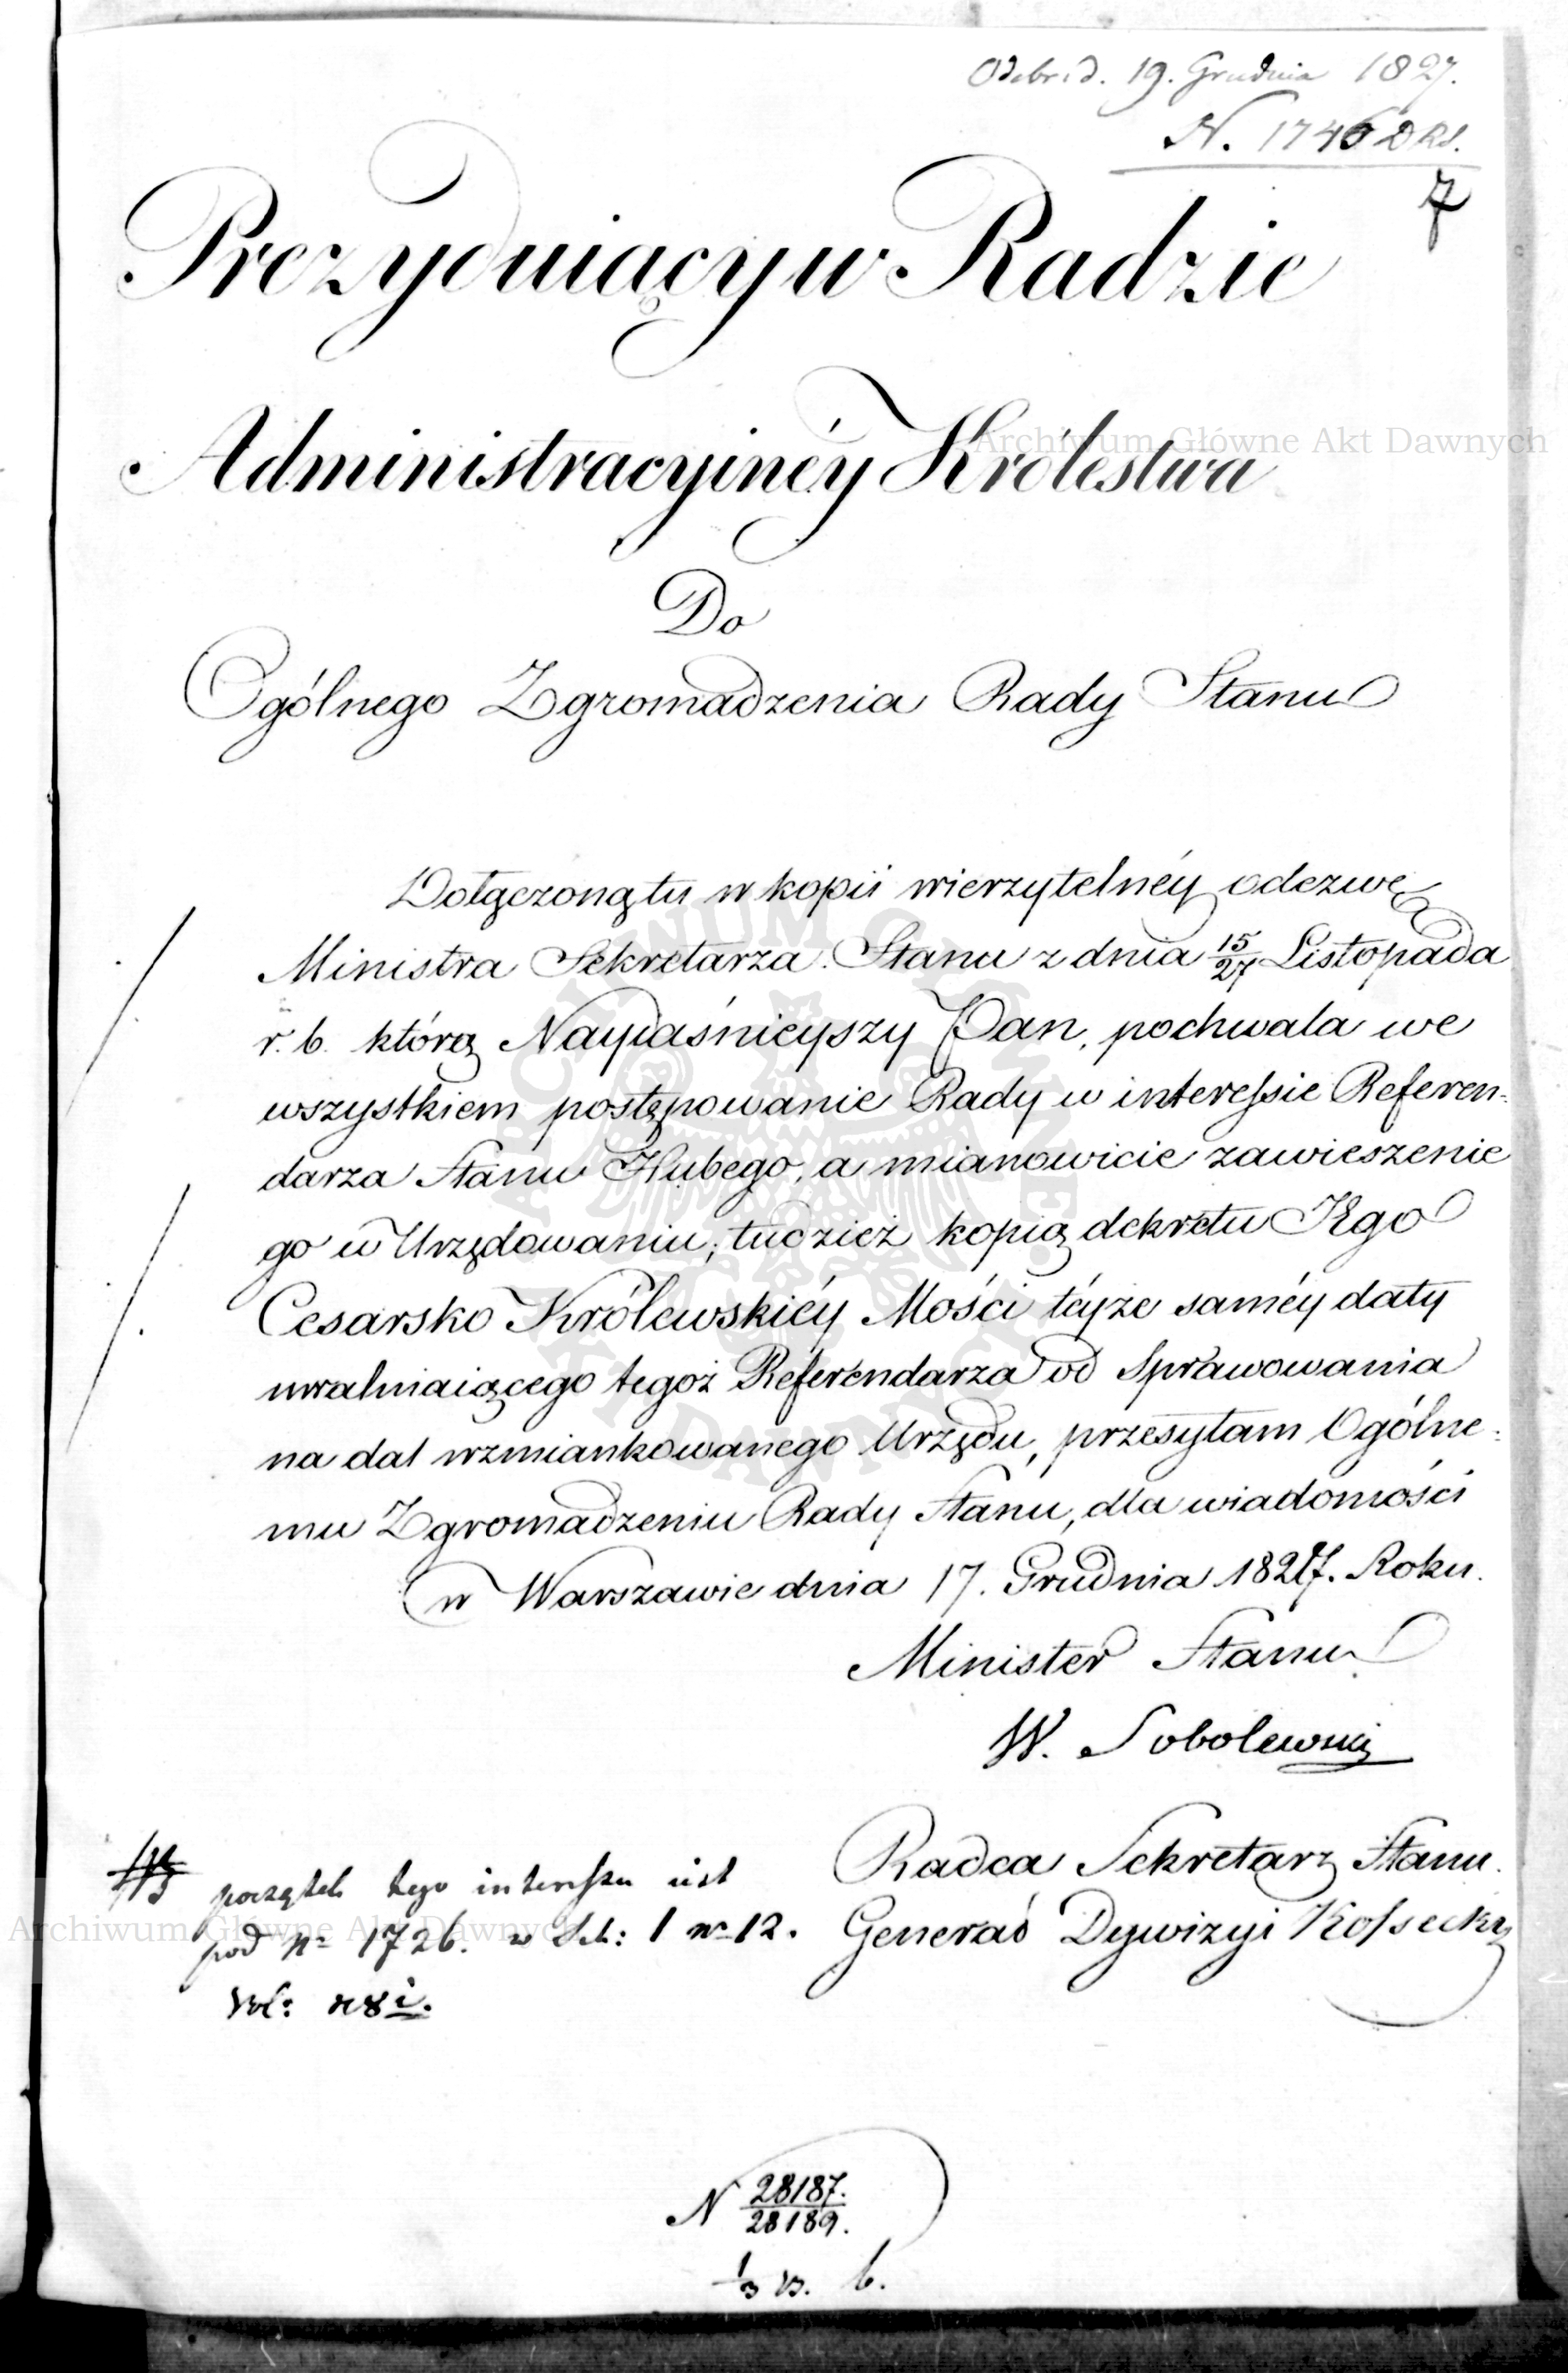 Odebr: d. 19. Grudnia 1827.
N. 1746 DRS.
7
Prezyduiący w Radzie
Administracyinéy Królestwa
Do
Ogólnego Zgromadzenia Rady Stanu
Dołączoną tu w kopii wierzytelnéy odezwę
Ministra Sekretarza Stanu z dnia 15/27 Listopada
r. b. którą Nayiaśnieyszy Pan, pochwala we
wszystkiem postępowanie Rady w interessie Referen-
darza Stanu Hubego, a mianowicie zawieszenie
go w Urzędowaniu; tudzież kopią dekretu Jego
Cesarsko Królewskiéy Mości téyże saméy daty
uwalniaiącego tegoż Referendarza od Sprawowania
na dal wzmiankowanego Urzędu, przesyłam Ogólne-
mu Zgromadzeniu Rady Stanu, dla wiadomości
w Warszawie dnia 17. Grudnia 1827. Roku.
Minister Stanu
W. Sobolewski
Radca Sekretarz Stanu
Generał Dywizyi Kossecki
początek tego interessu iest
pod No 1726. w Sch: 1 No 12.
Vol:
N 28187./28189.
1/3 b.
Archiwum Główne Akt Dawnych
Archiwum Główne Akt Dawnych
ARCHIWUM GŁÓWNE AKT DAWNYCH